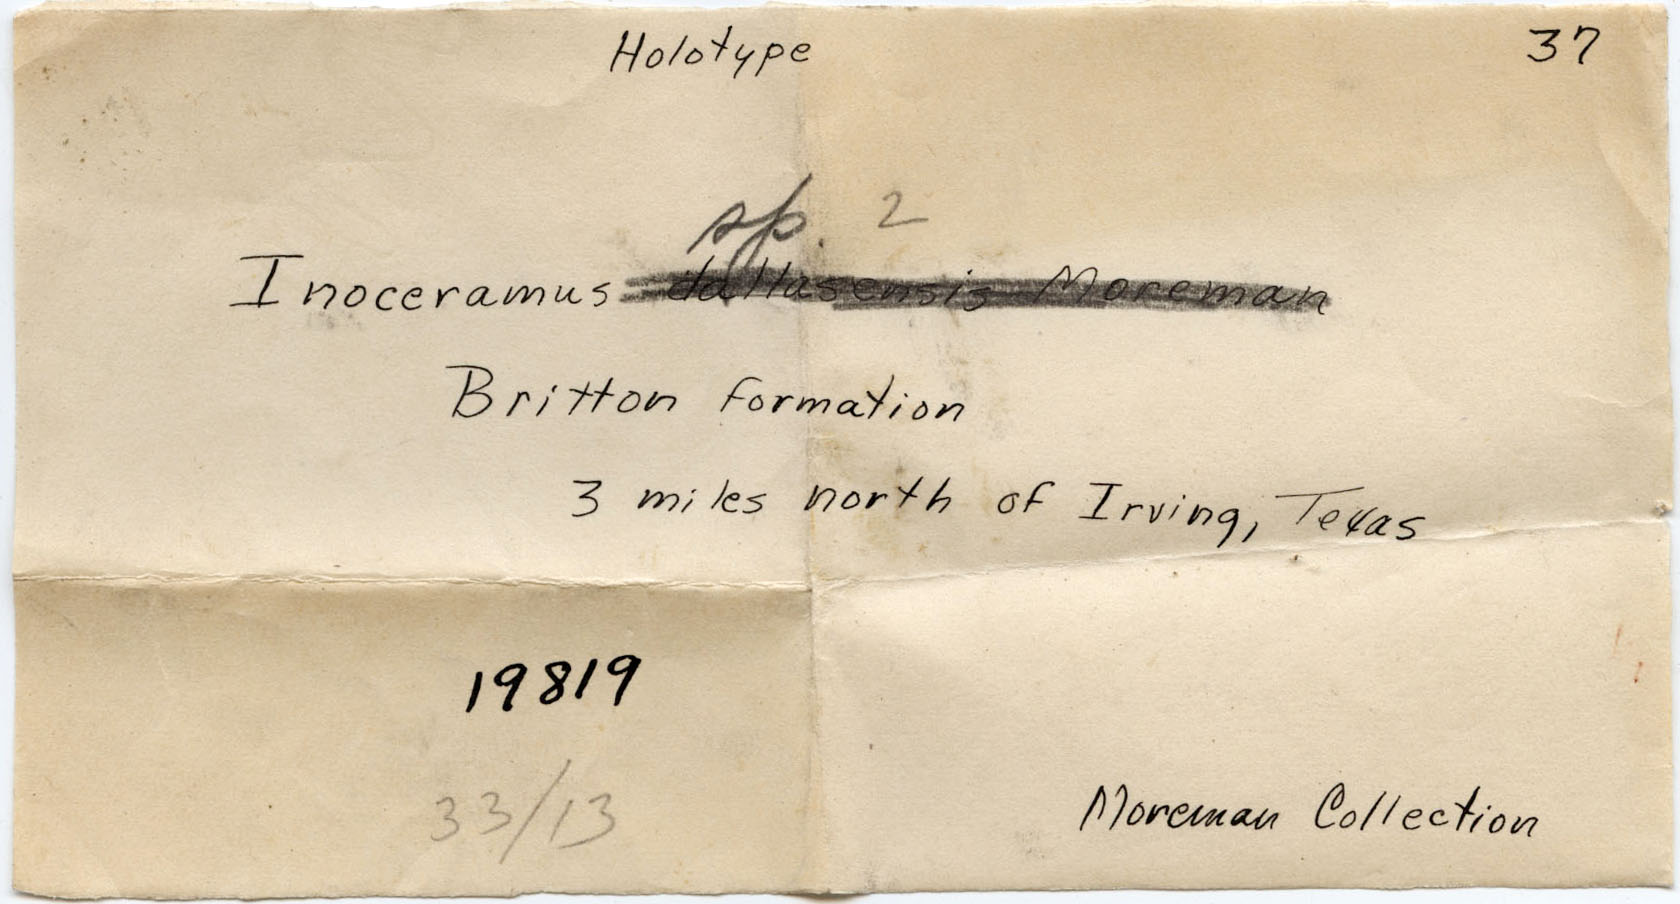 Holotype 37
sp. 2
Inoceramus dallasensis Moreman
Britton formation
3 miles north of Irving, Texas
19819
33/13
Moreman Collection